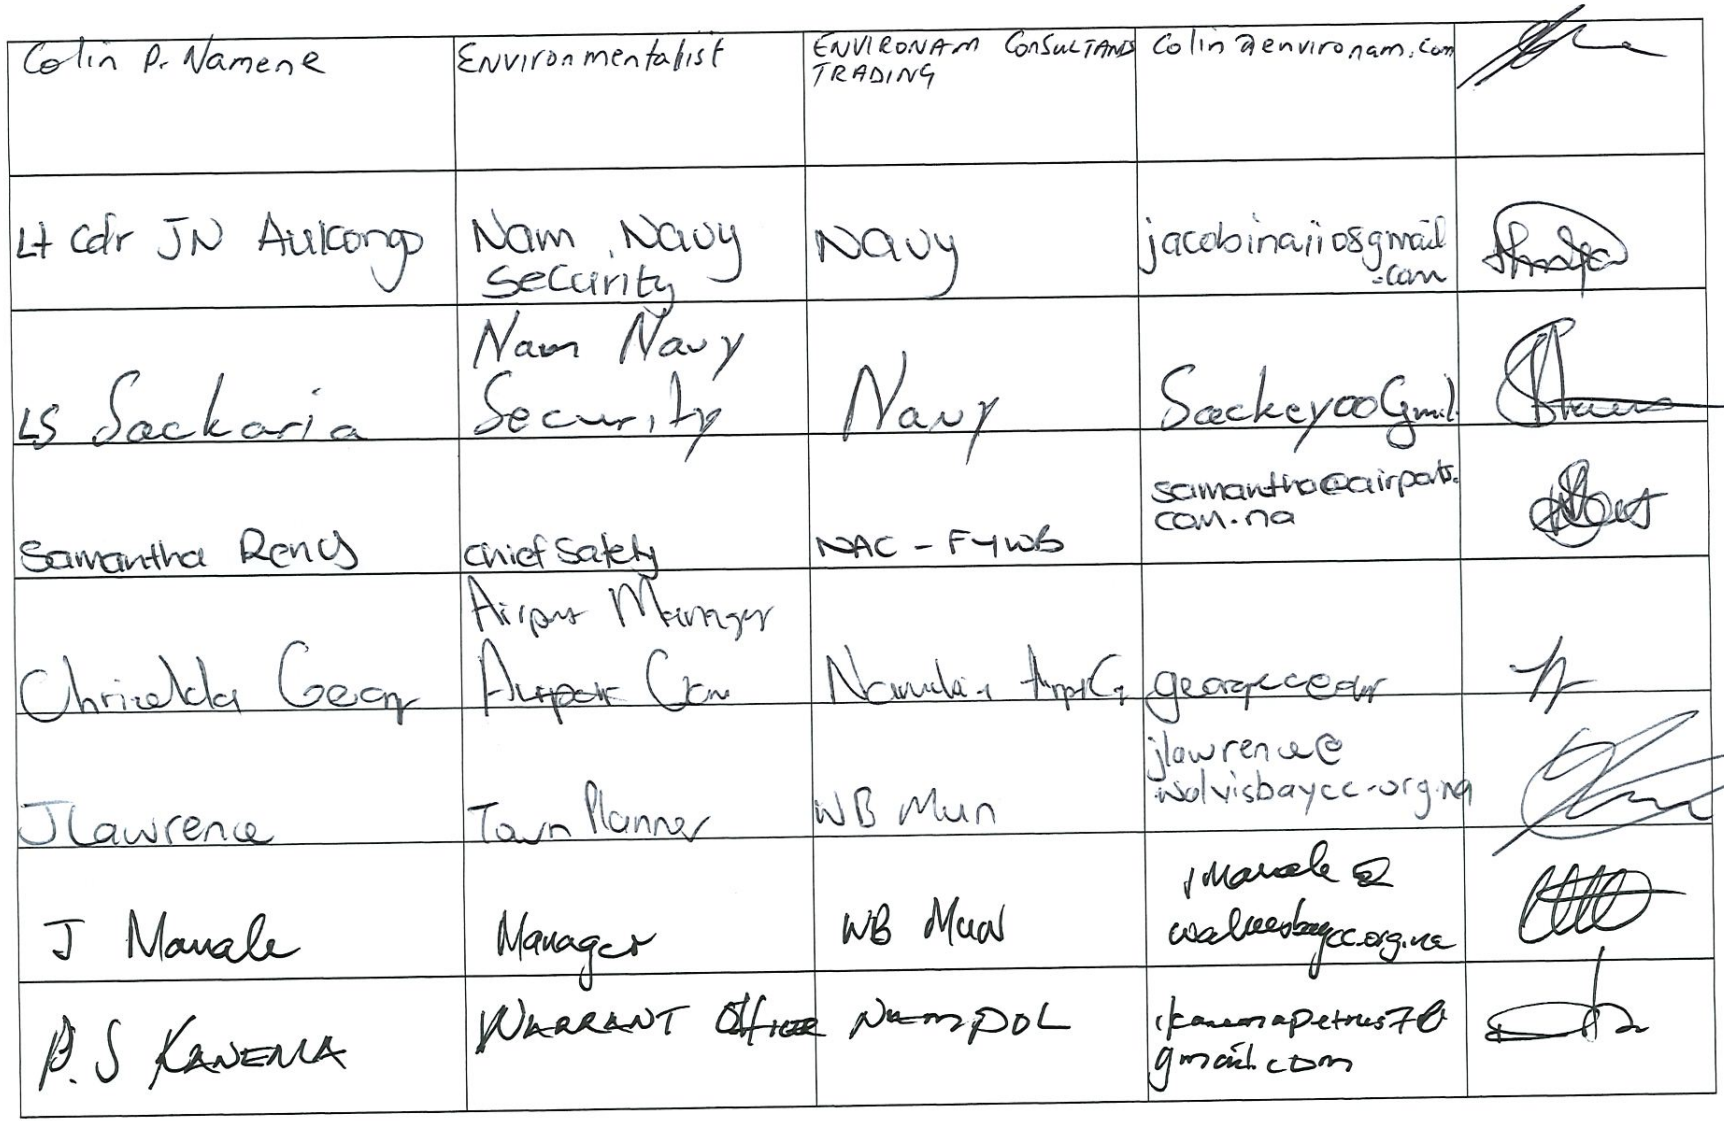 Colin P. Namene
Environmentalist
ENVIRONAM CONSULTANTS
TRADING
Colin@environam.com
Lt Cdr JN Aukongo
Nam Navy
Security
Navy
jacobina1108gmail
.com
LS Sackaria
Nam Navy
Security
Navy
Sackey00Gmail.
Samantha
Chief Safety
NAC - FYWB
samantha@airports.
com.na
Airport Manager
Chrizelda
Airport
JLawrence
Town Planner
WB Mun
jlawrence@
walvisbaycc.org.na
J Manale
Manager
WB Mun
jManale @
walvisbaycc.org.na
P. S KANEMA
WARRANT Officer
NAMPOL
kanemapetrus7@
gmail.com